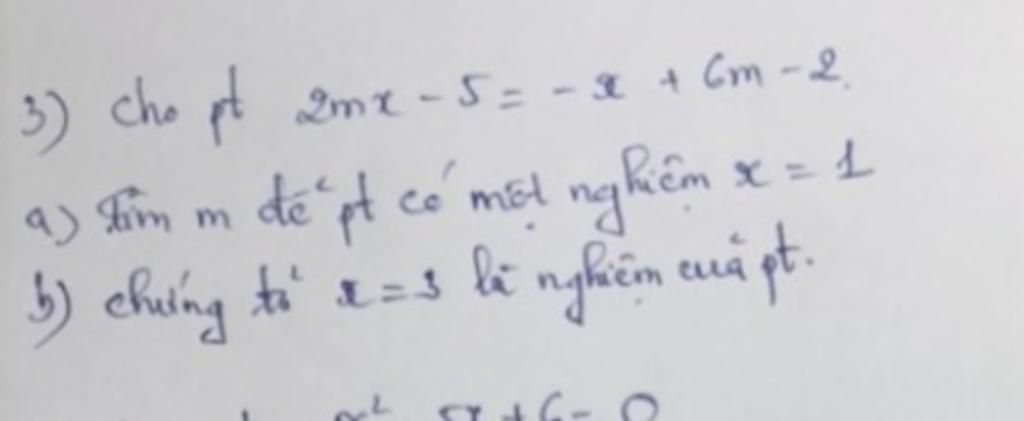 3) Cho pt 2mx - 5 = - x + 6m - 2.
a) Tìm m để pt có một nghiệm x = 1
b) chứng tỏ x = 3 là nghiệm của pt.
x² 5x + 6 = 0